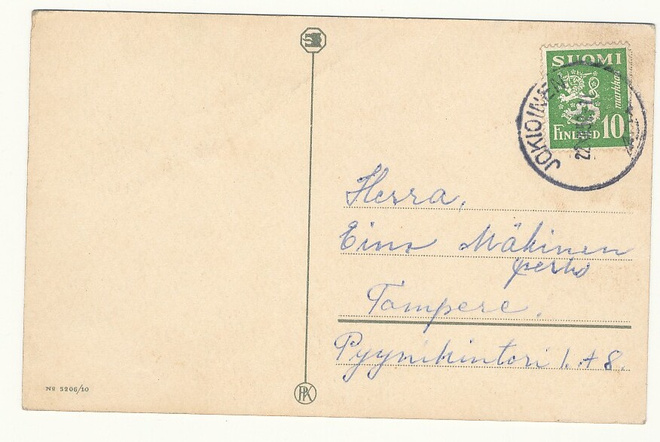 SUOMI
markkaa
FINLAND 10
JOKIOINEN
Herra,
Eino Mäkinen
perhe
Tampere.
Pyynikintori 1. A 8.
No 5206/10